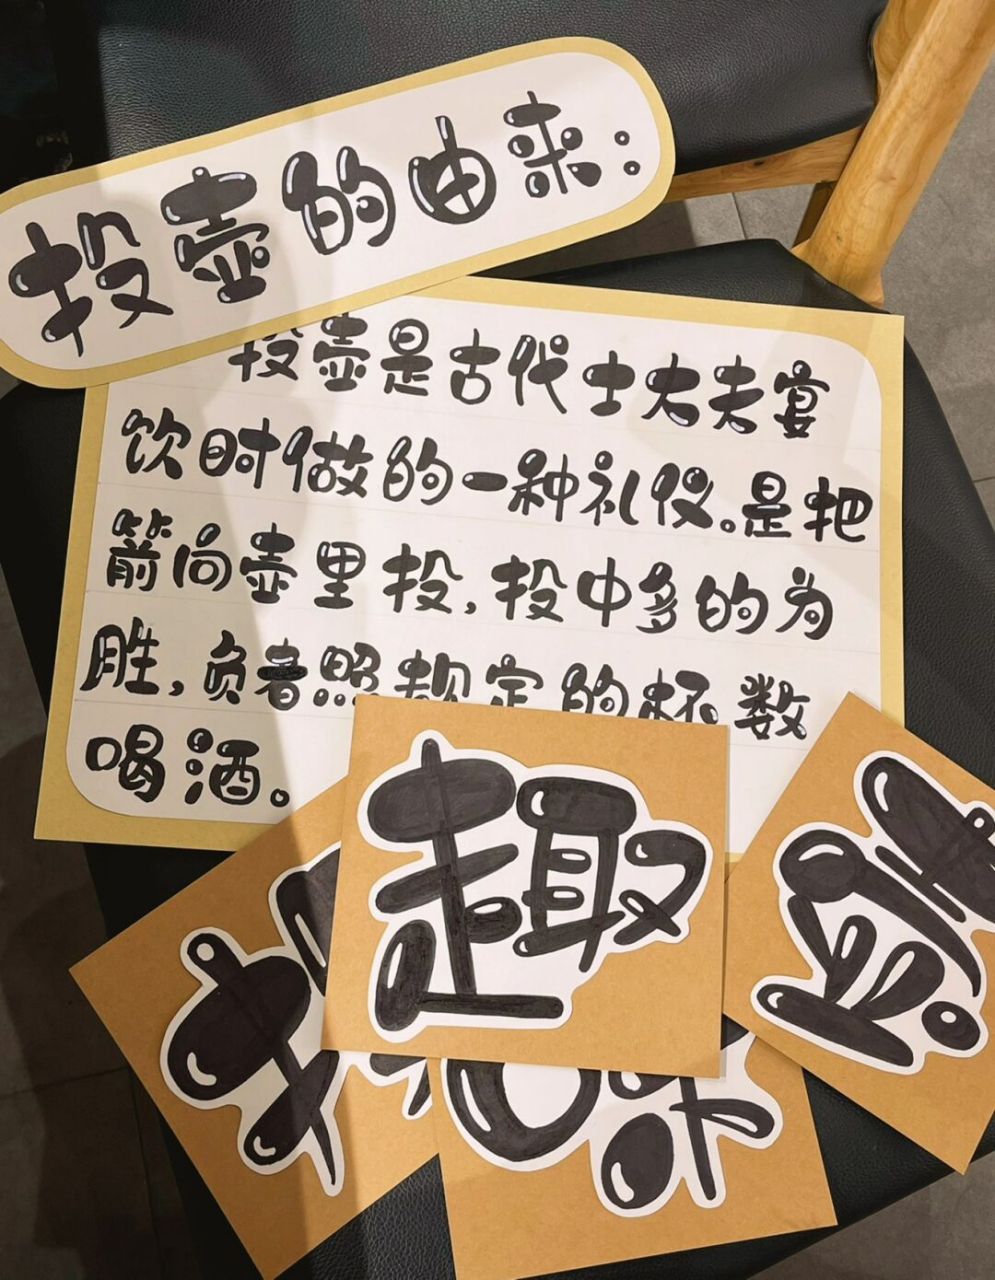 投壶的由来:
投壶是古代士大夫宴
饮时做的一种礼仪。是把
箭向壶里投,投中多的为
胜,负者照规定的杯数
喝酒。
趣
壶
投
味